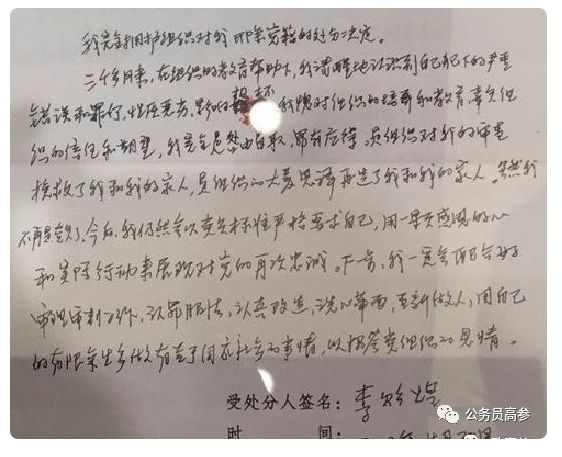 我完全拥护组织对我开除党籍的处分决定。
二个多月来，在组织的教育帮助下，我清醒地认识到自己犯下的严重
错误和罪行，性质恶劣，影响极坏。我愧对组织的培养和教育，辜负组
织的信任和期望，我完全是咎由自取，罪有应得。是组织对我的审查
挽救了我和我的家人，是组织的大爱恩泽再造了我和我的家人。虽然我
不再是党员了，今后，我仍然会以党员标准严格要求自己，用一颗感恩的心
和实际行动来展现对党的再次忠诚。下步，我一定会配合好
审理审判工作，认罪服法。认真改造，洗心革面，重新做人，用自己
的有限余生多做有益于国家社会的事情，以报答党组织的恩情。
受处分人签名：李
时 间：
公务员高参